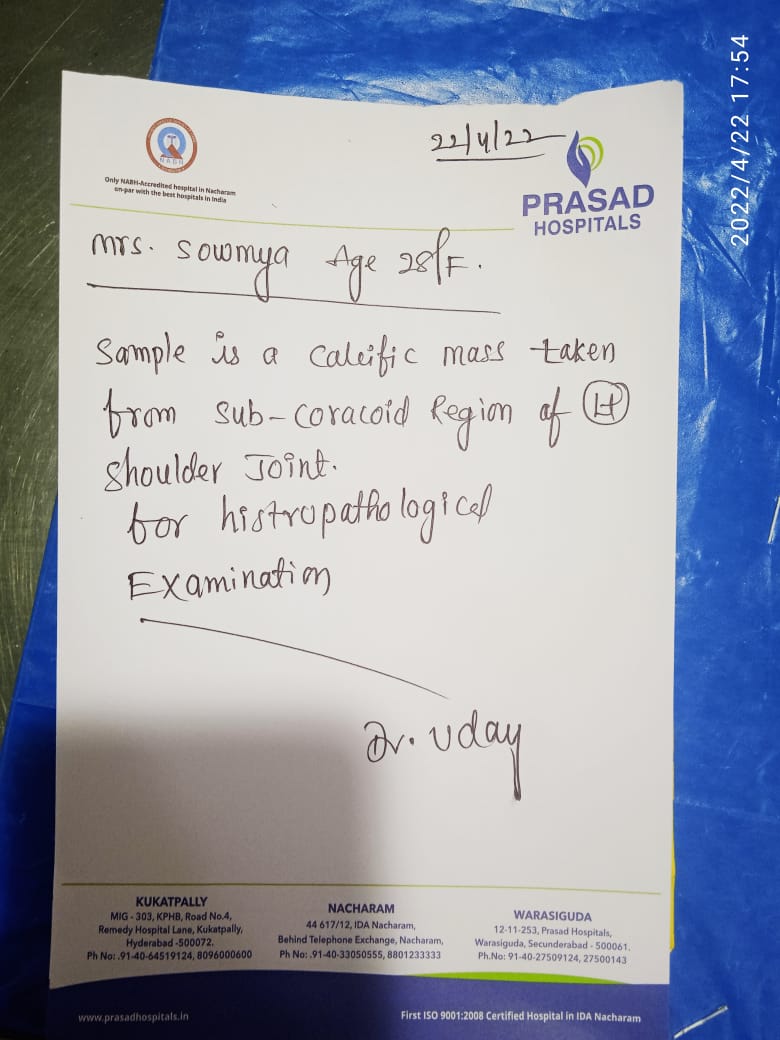 2022/4/22 17:54
NABH
Only NABH-Accredited hospital in Nacharam
on-par with the best hospitals in India
22/4/22
PRASAD
HOSPITALS
Mrs. Sowmya Age 28/F.
Sample is a Calcific mass taken
from Sub-Coracoid Region of Lt
Shoulder Joint.
for histropathological
Examination
Dr. Uday
KUKATPALLY
MIG - 303, KPHB, Road No.4,
Remedy Hospital Lane, Kukatpally,
Hyderabad -500072.
Ph No: .91-40-64519124, 8096000600
NACHARAM
44 617/12, IDA Nacharam,
Behind Telephone Exchange, Nacharam,
Ph No: .91-40-33050555, 8801233333
WARASIGUDA
12-11-253, Prasad Hospitals,
Warasiguda, Secunderabad - 500061.
Ph.No: 91-40-27509124, 27500143
www.prasadhospitals.in
First ISO 9001:2008 Certified Hospital in IDA Nacharam